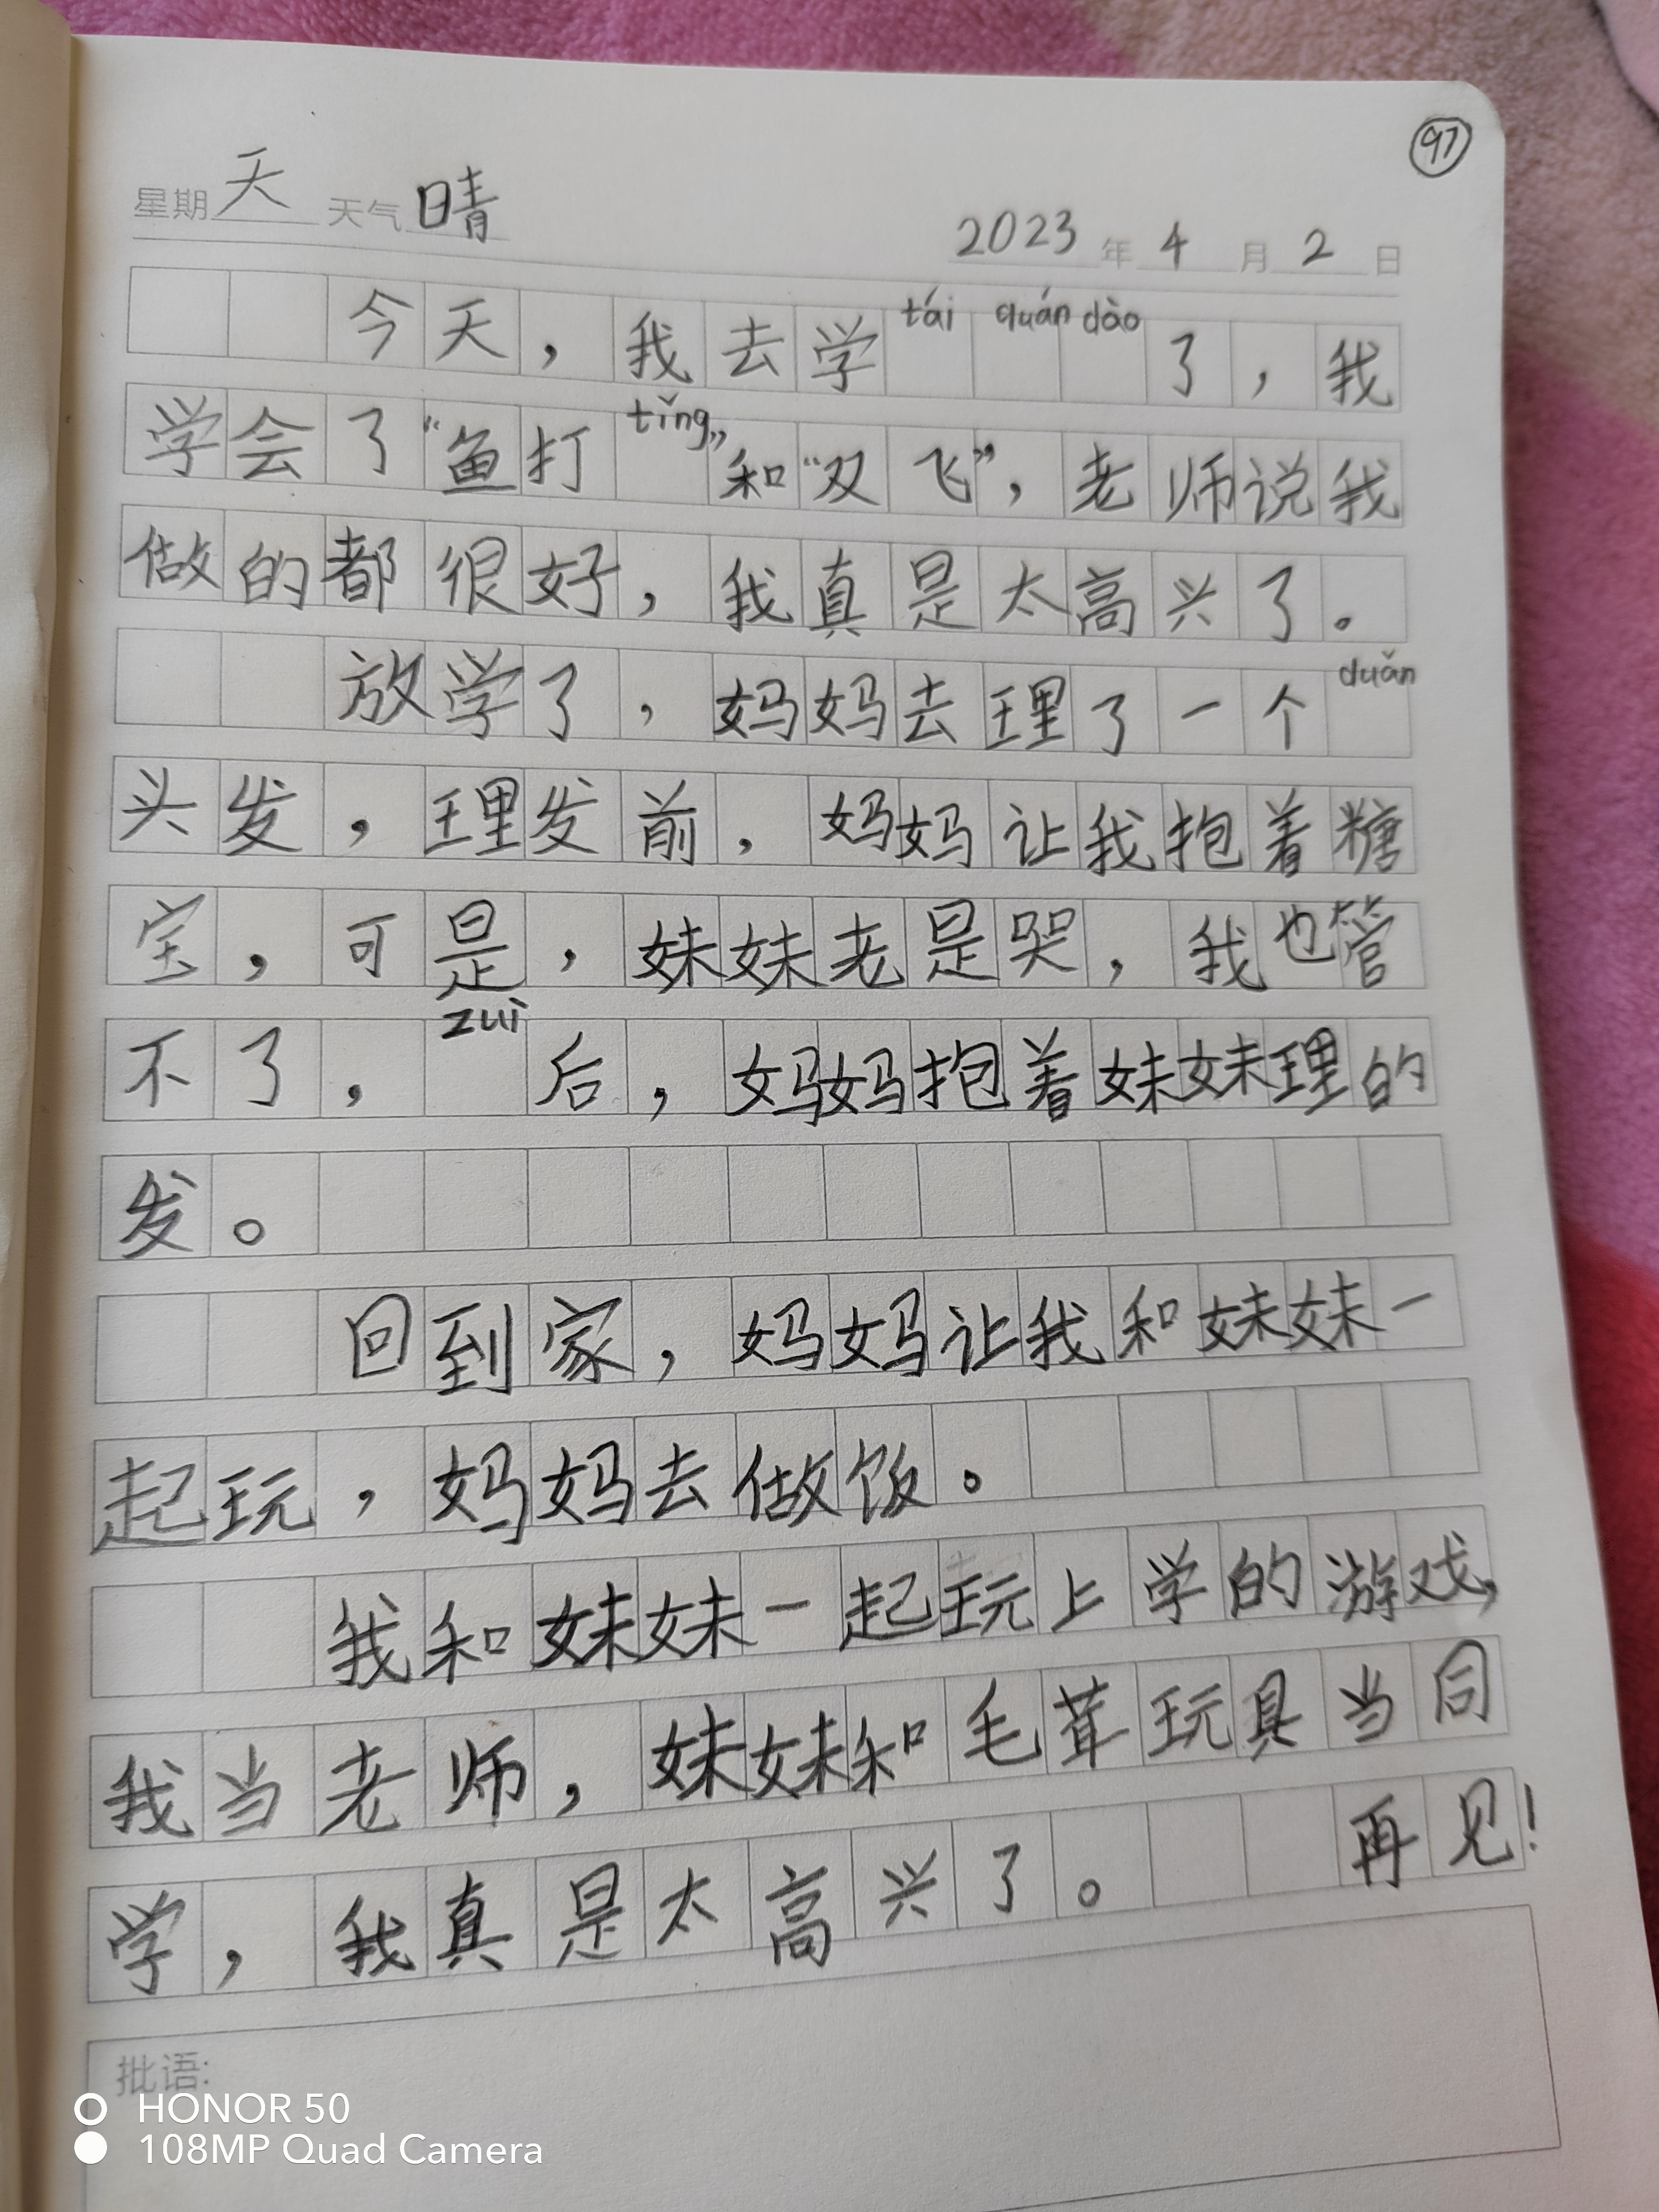 97
星期天 天气晴
2023年4月2日
今天，我去学tái quán dào了，我
学会了“鱼打tǐng”和“双飞”，老师说我
做的都很好，我真是太高兴了。
放学了，妈妈去理了一个duǎn
头发，理发前，妈妈让我抱着糖
宝，可是，妹妹老是哭，我也管
不了，zuì后，妈妈抱着妹妹理的
发。
回到家，妈妈让我和妹妹一
起玩，妈妈去做饭。
我和妹妹一起玩上学的游戏，
我当老师，妹妹和毛茸玩具当同
学，我真是太高兴了。 再见！
批语:
HONOR 50
108MP Quad Camera